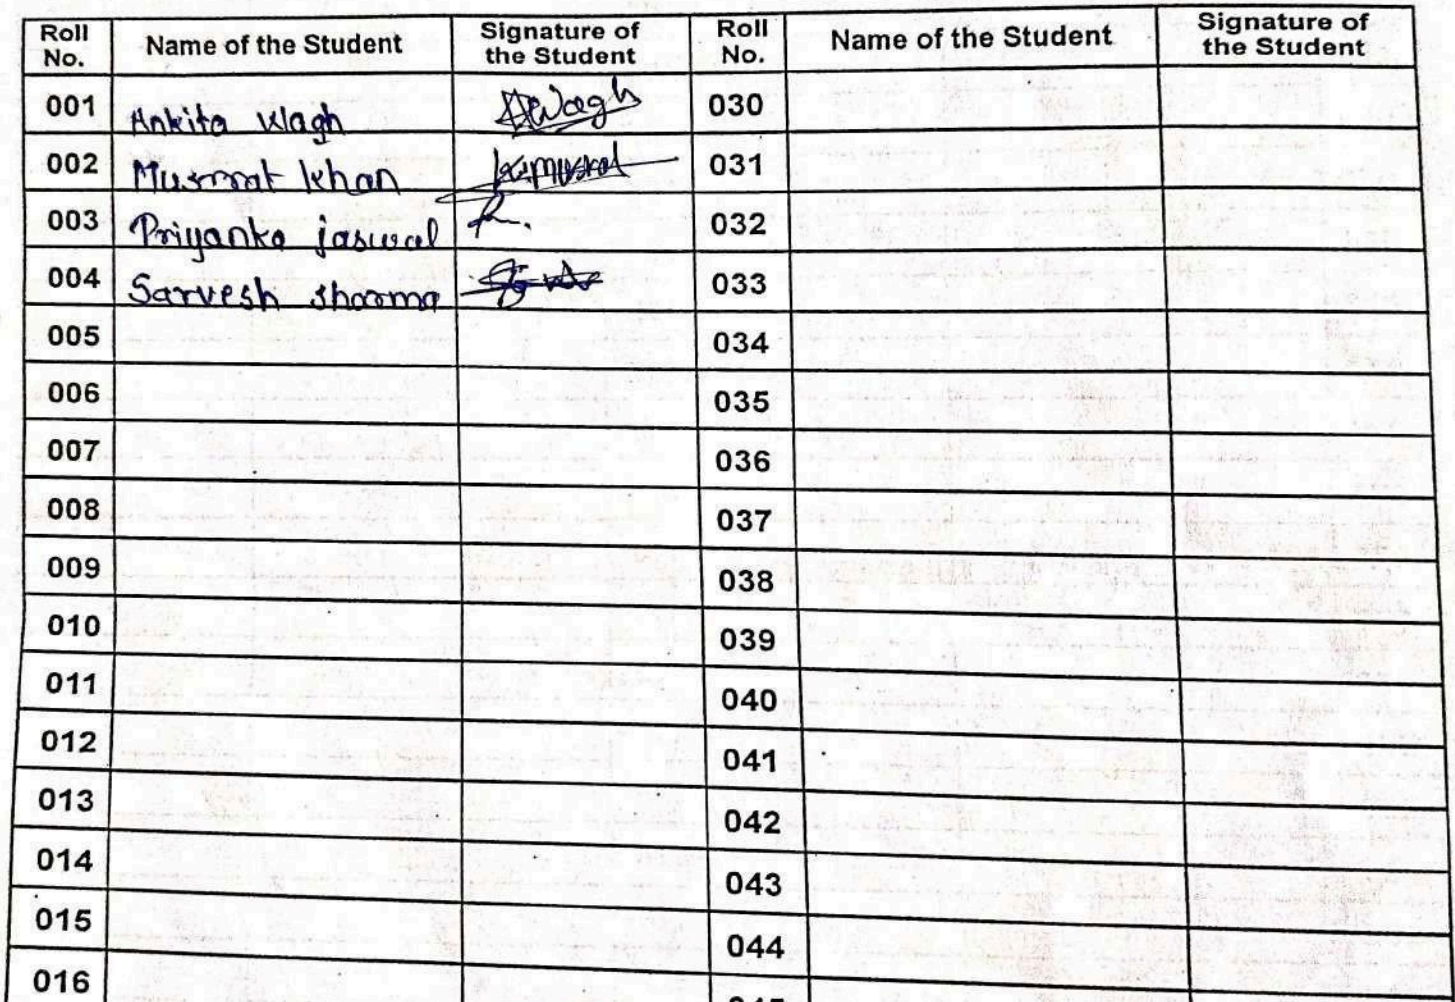 Roll No. Name of the Student Signature of the Student Roll No. Name of the Student Signature of the Student
001 Ankita Wagh AWagh 030
002 Musrrat khan 031
003 Priyanka jaswal 032
004 Sarvesh sharma 033
005 034
006 035
007 036
008 037
009 038
010 039
011 040
012 041
013 042
014 043
015 044
016